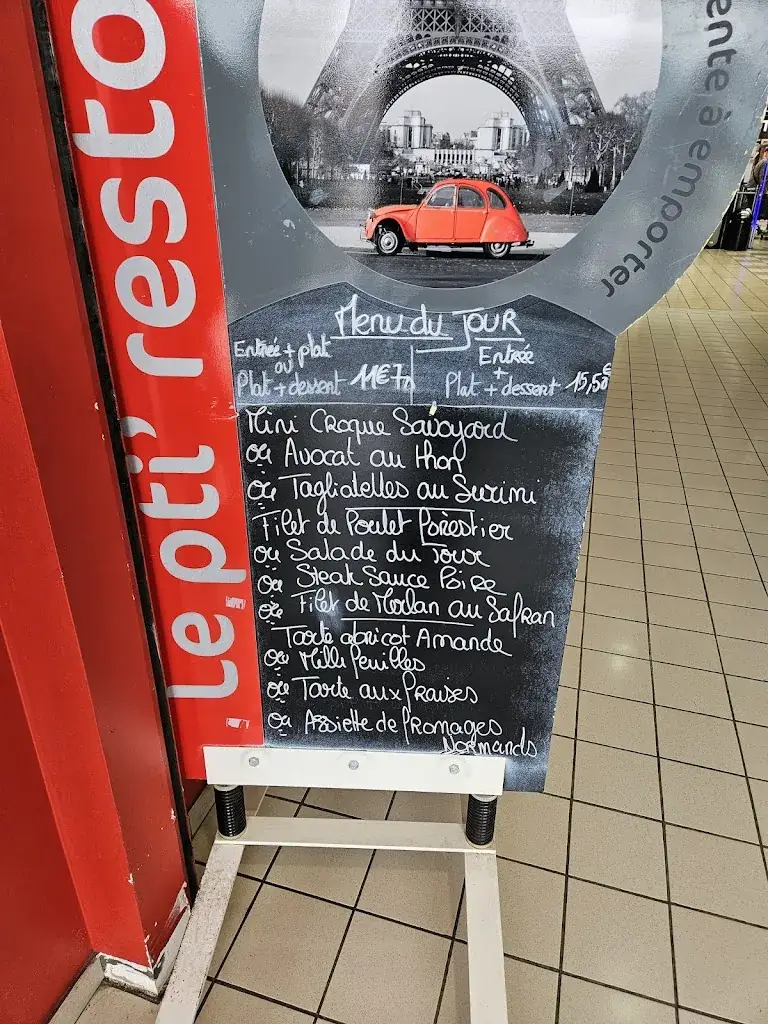 Le pti' resto
ente à emporter
Menu du JOUR
Entrée + plat
ou
Plat + dessert 11€70
Entrée
+
Plat + dessert 15,50€
Mini Croque Savoyard
ou Avocat au thon
ou Tagliatelles au Surimi
Filet de Poulet forestier
ou Salade du Jour
ou Steak Sauce Poivre
ou Filet de Merlan au Safran
Tarte abricot Amande
ou Mille feuilles
ou Tarte aux fraises
ou Assiette de fromages
Normands